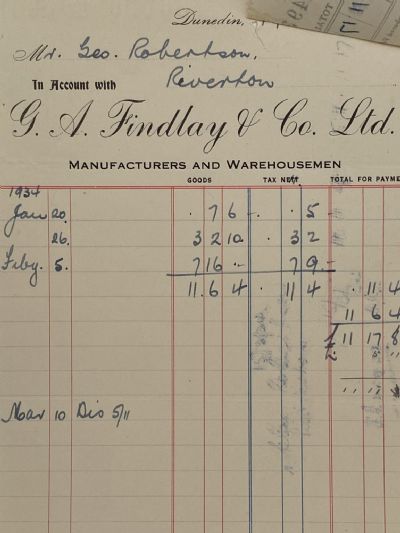 Dunedin,
Mr. Geo. Robertson,
Riverton
In Account with
G. A. Findlay & Co. Ltd.
MANUFACTURERS AND WAREHOUSEMEN
GOODS TAX Nett. TOTAL FOR PAYME
1934
Jan 20. . 7 6 - . . 5 -
26. 3 2 10 . 3 2
Feby. 5. 7 16 .. 7 9 -
11. 6 4 . 11 4 . 11 4
11 6 4
£ 11 17 8
Mar 10 Dis 5/11